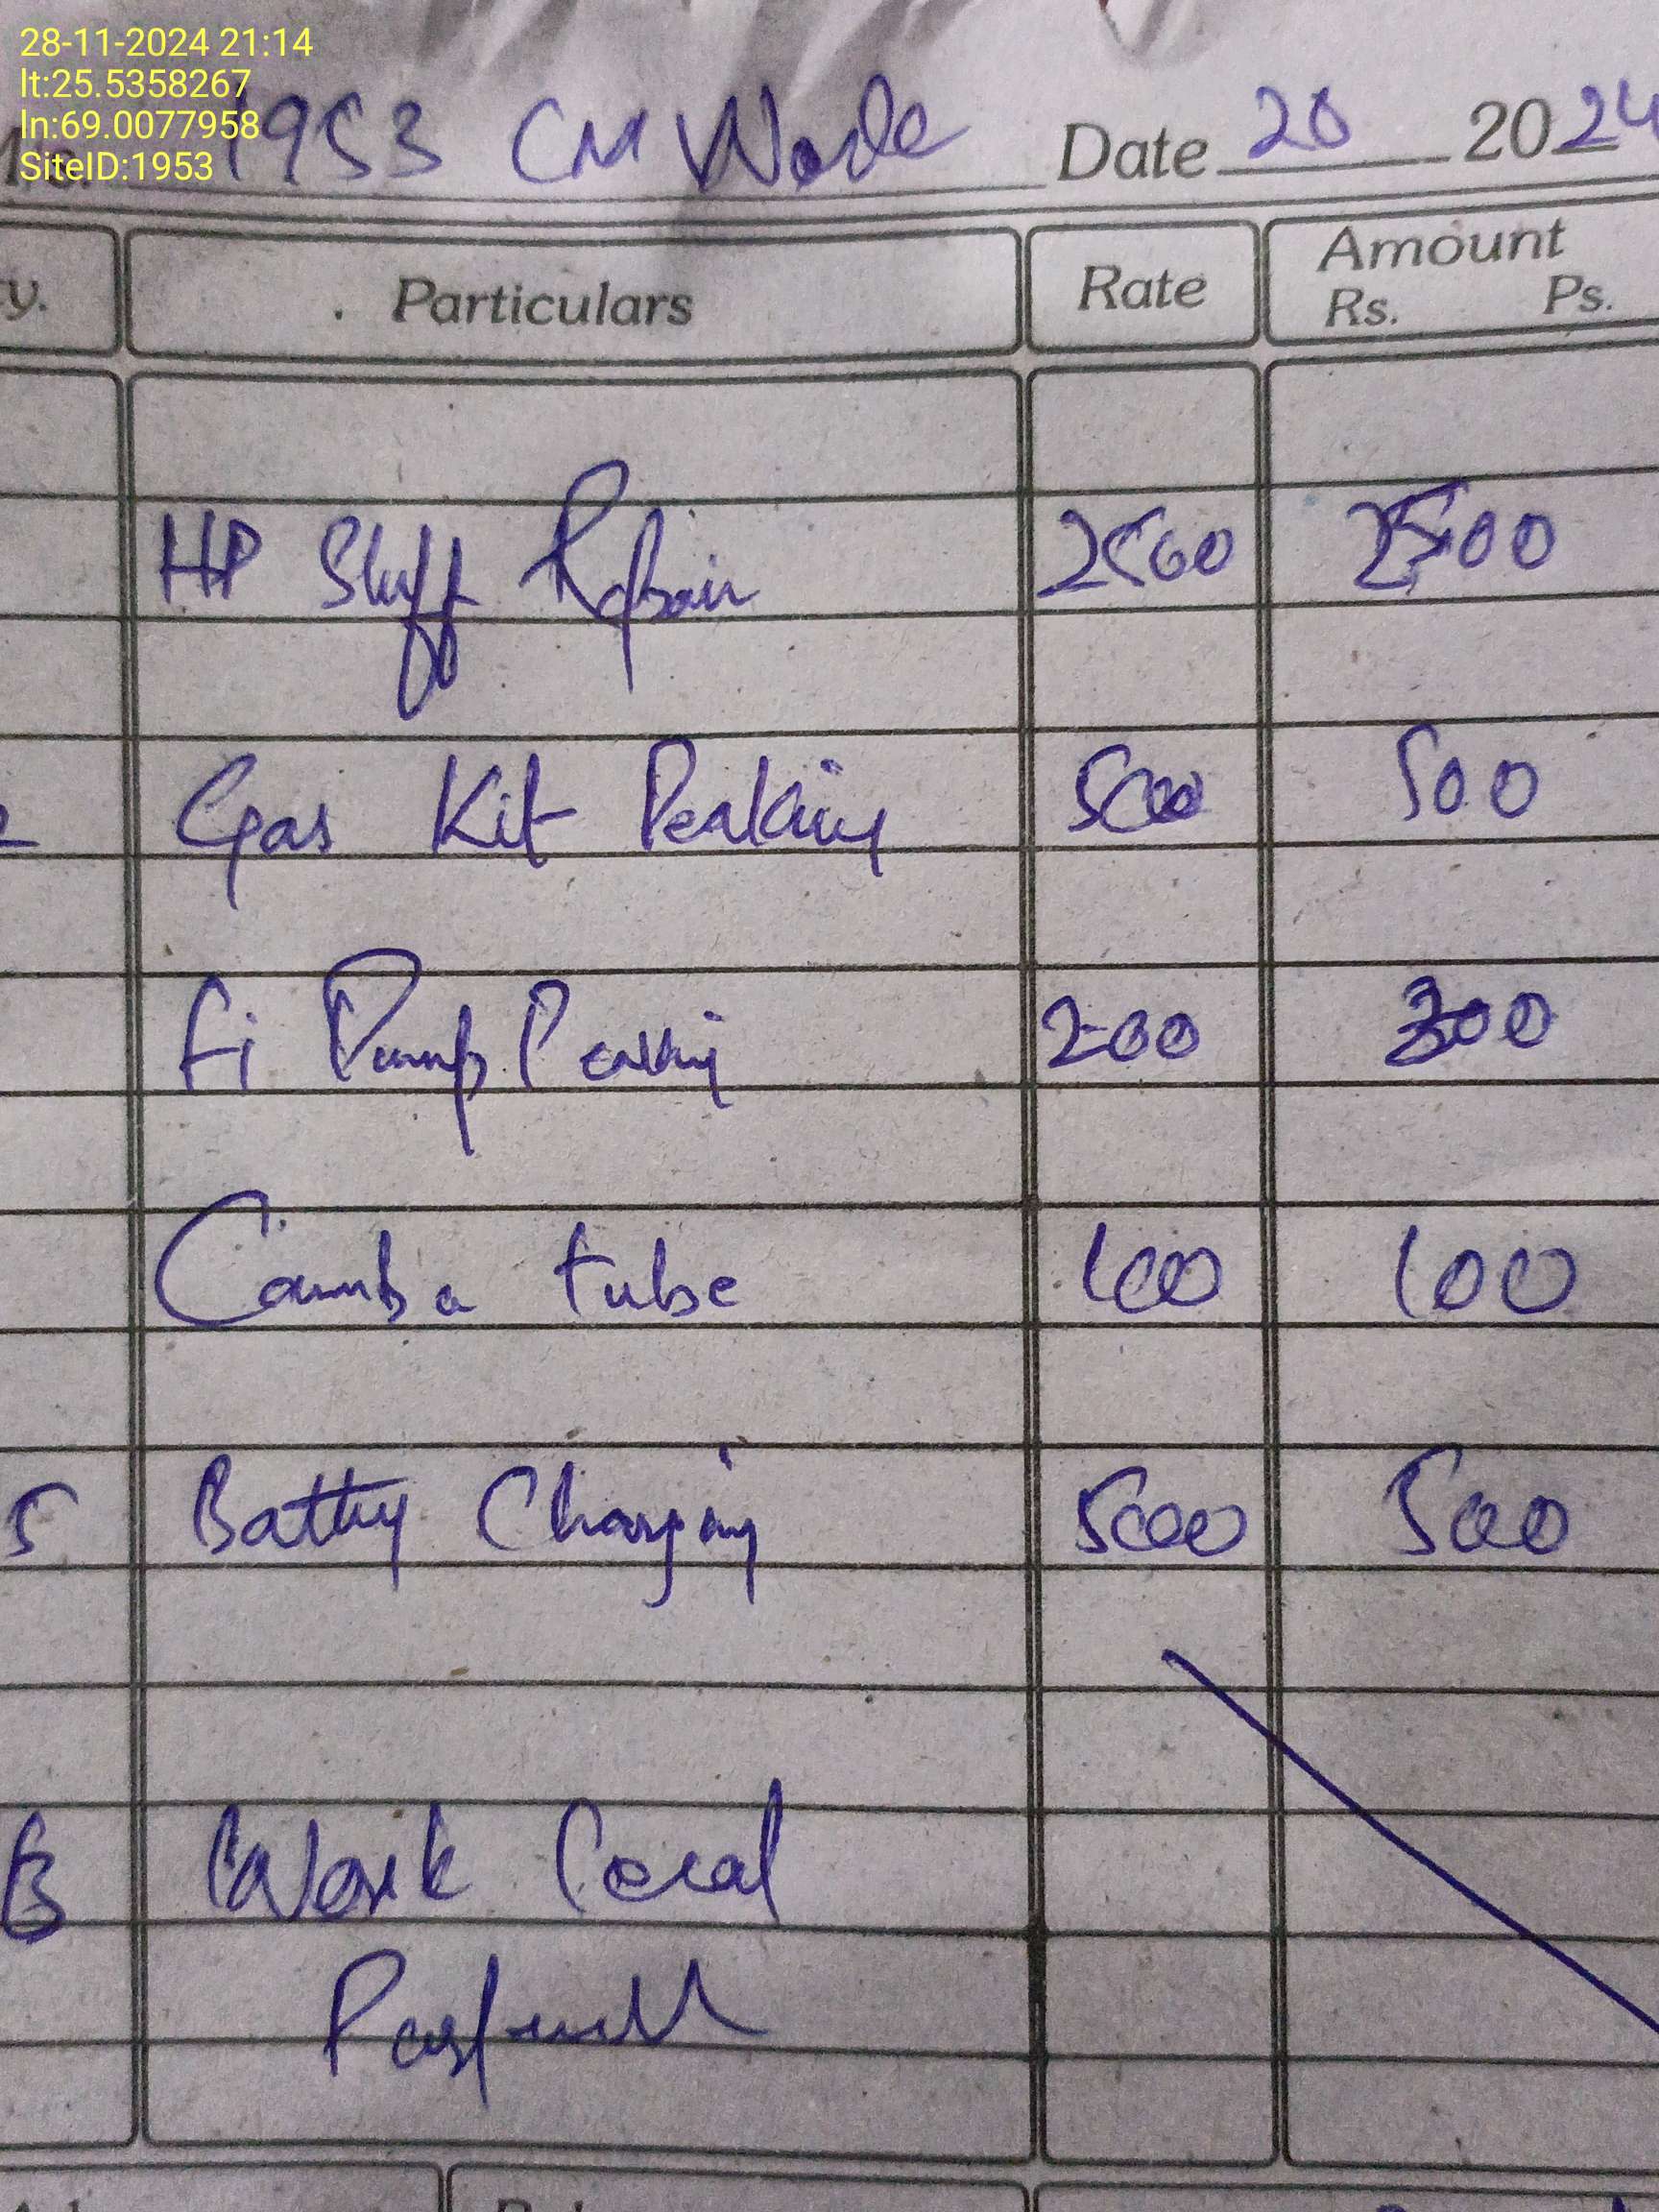 28-11-2024 21:14
lt:25.5358267
ln:69.0077958
SiteID:1953
1953 CM Wade Date 20 2024
y. Particulars Rate Amount
Rs. Ps.
HP Sluff Repair 2500 2500
Gas Kit Peaking 500 500
fi Pump Peaking 200 300
Camba tube 100 100
5 Battry Charging 500 500
Work